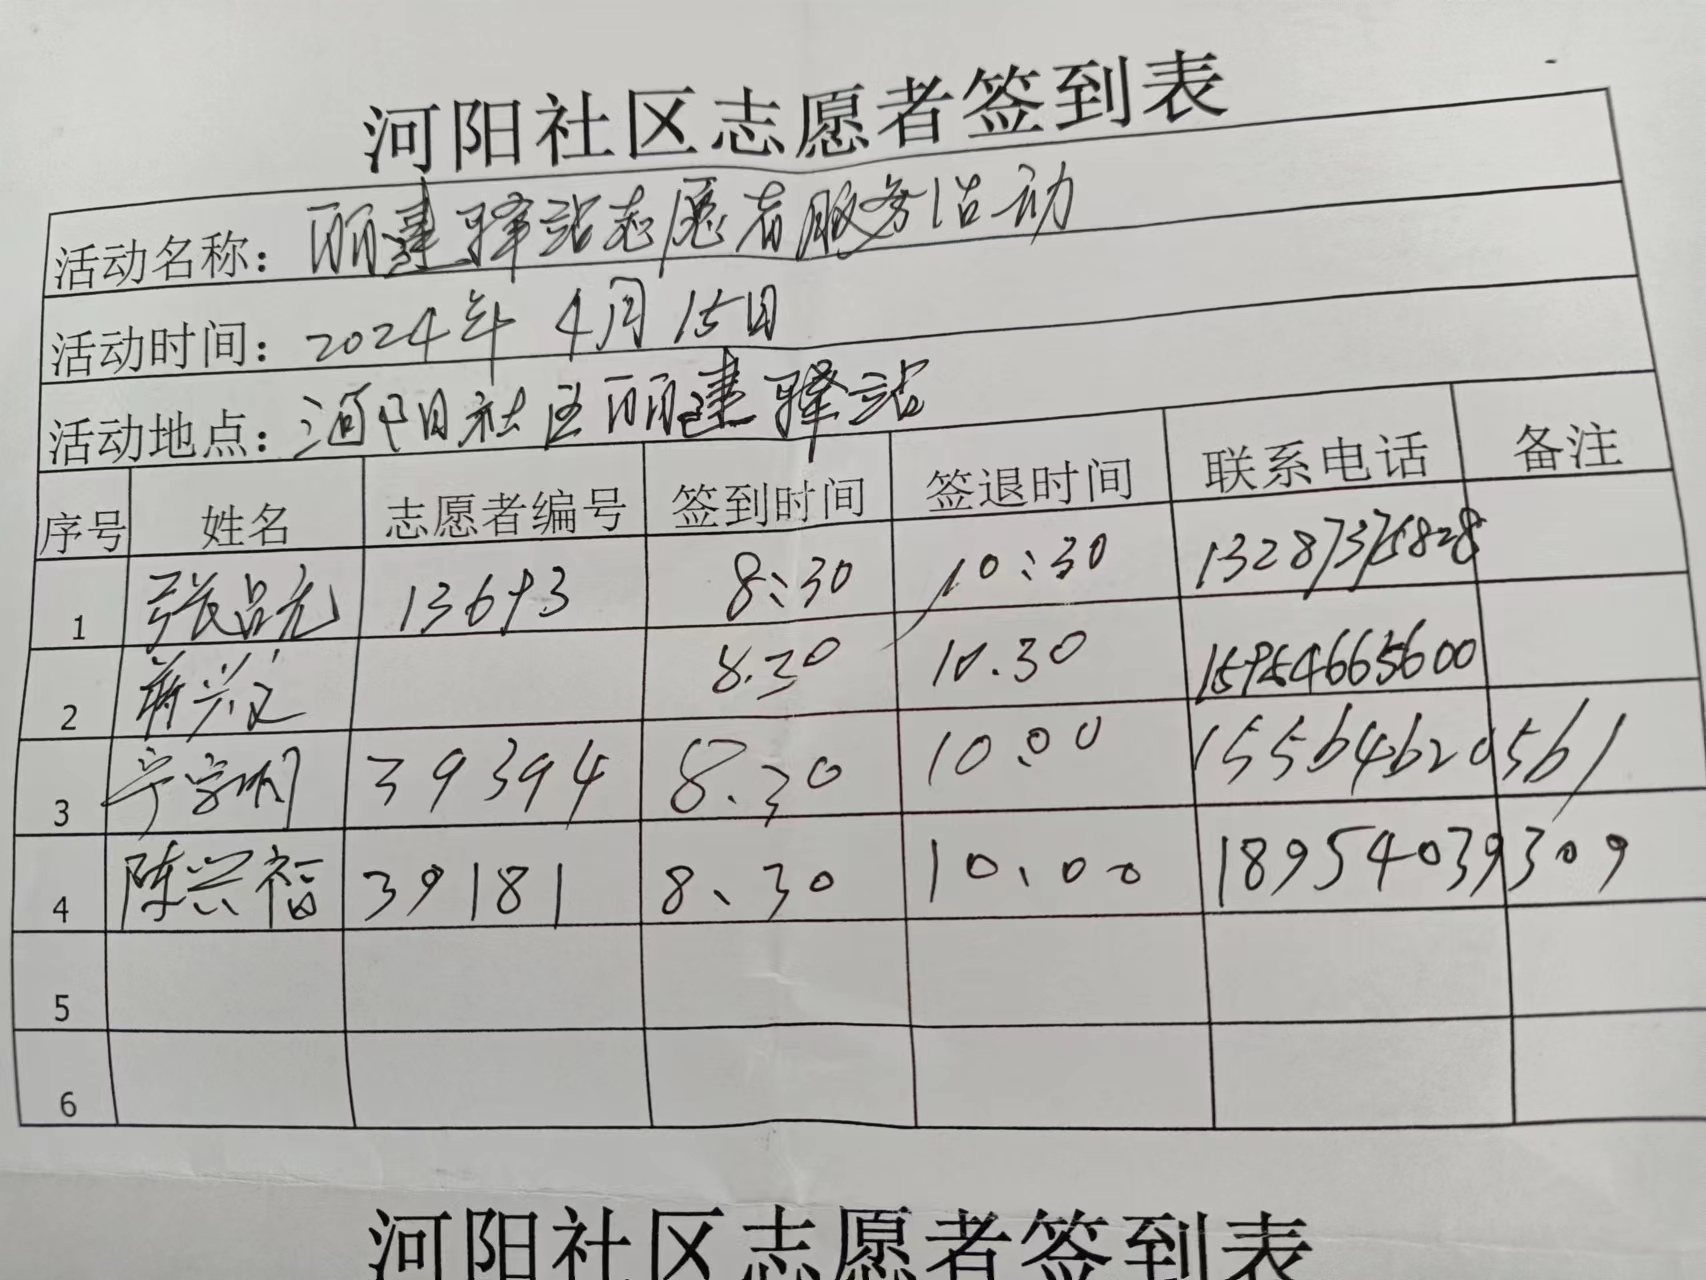 河阳社区志愿者签到表
活动名称：丽建驿站志愿者服务活动
活动时间：2024年 4月 15日
活动地点：河阳社区丽建驿站
序号 姓名 志愿者编号 签到时间 签退时间 联系电话 备注
1 张昌元 13693 8:30 10:30
2 蒋兴文 8.30 10.30 15954665600
3 39394 8.30 10:00 15564620561
4 陈兴福 39181 8、30 10、00 18954039309
5
6
河阳社区志愿者签到表